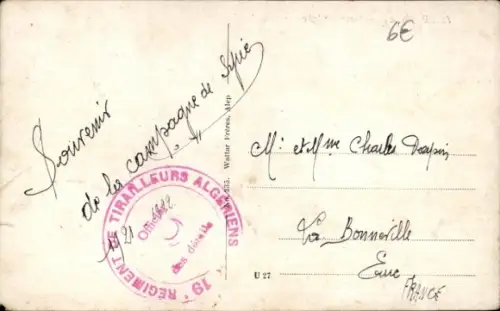 6€
Souvenir
de la campagne de Syrie
1921-1922
19e REGIMENT DE TIRAILLEURS ALGERIENS
Officier
des détails
Wattar Frères, Alep
U 27
Mr. et Mme Charles
La Bonneville
Eure
FRANCE